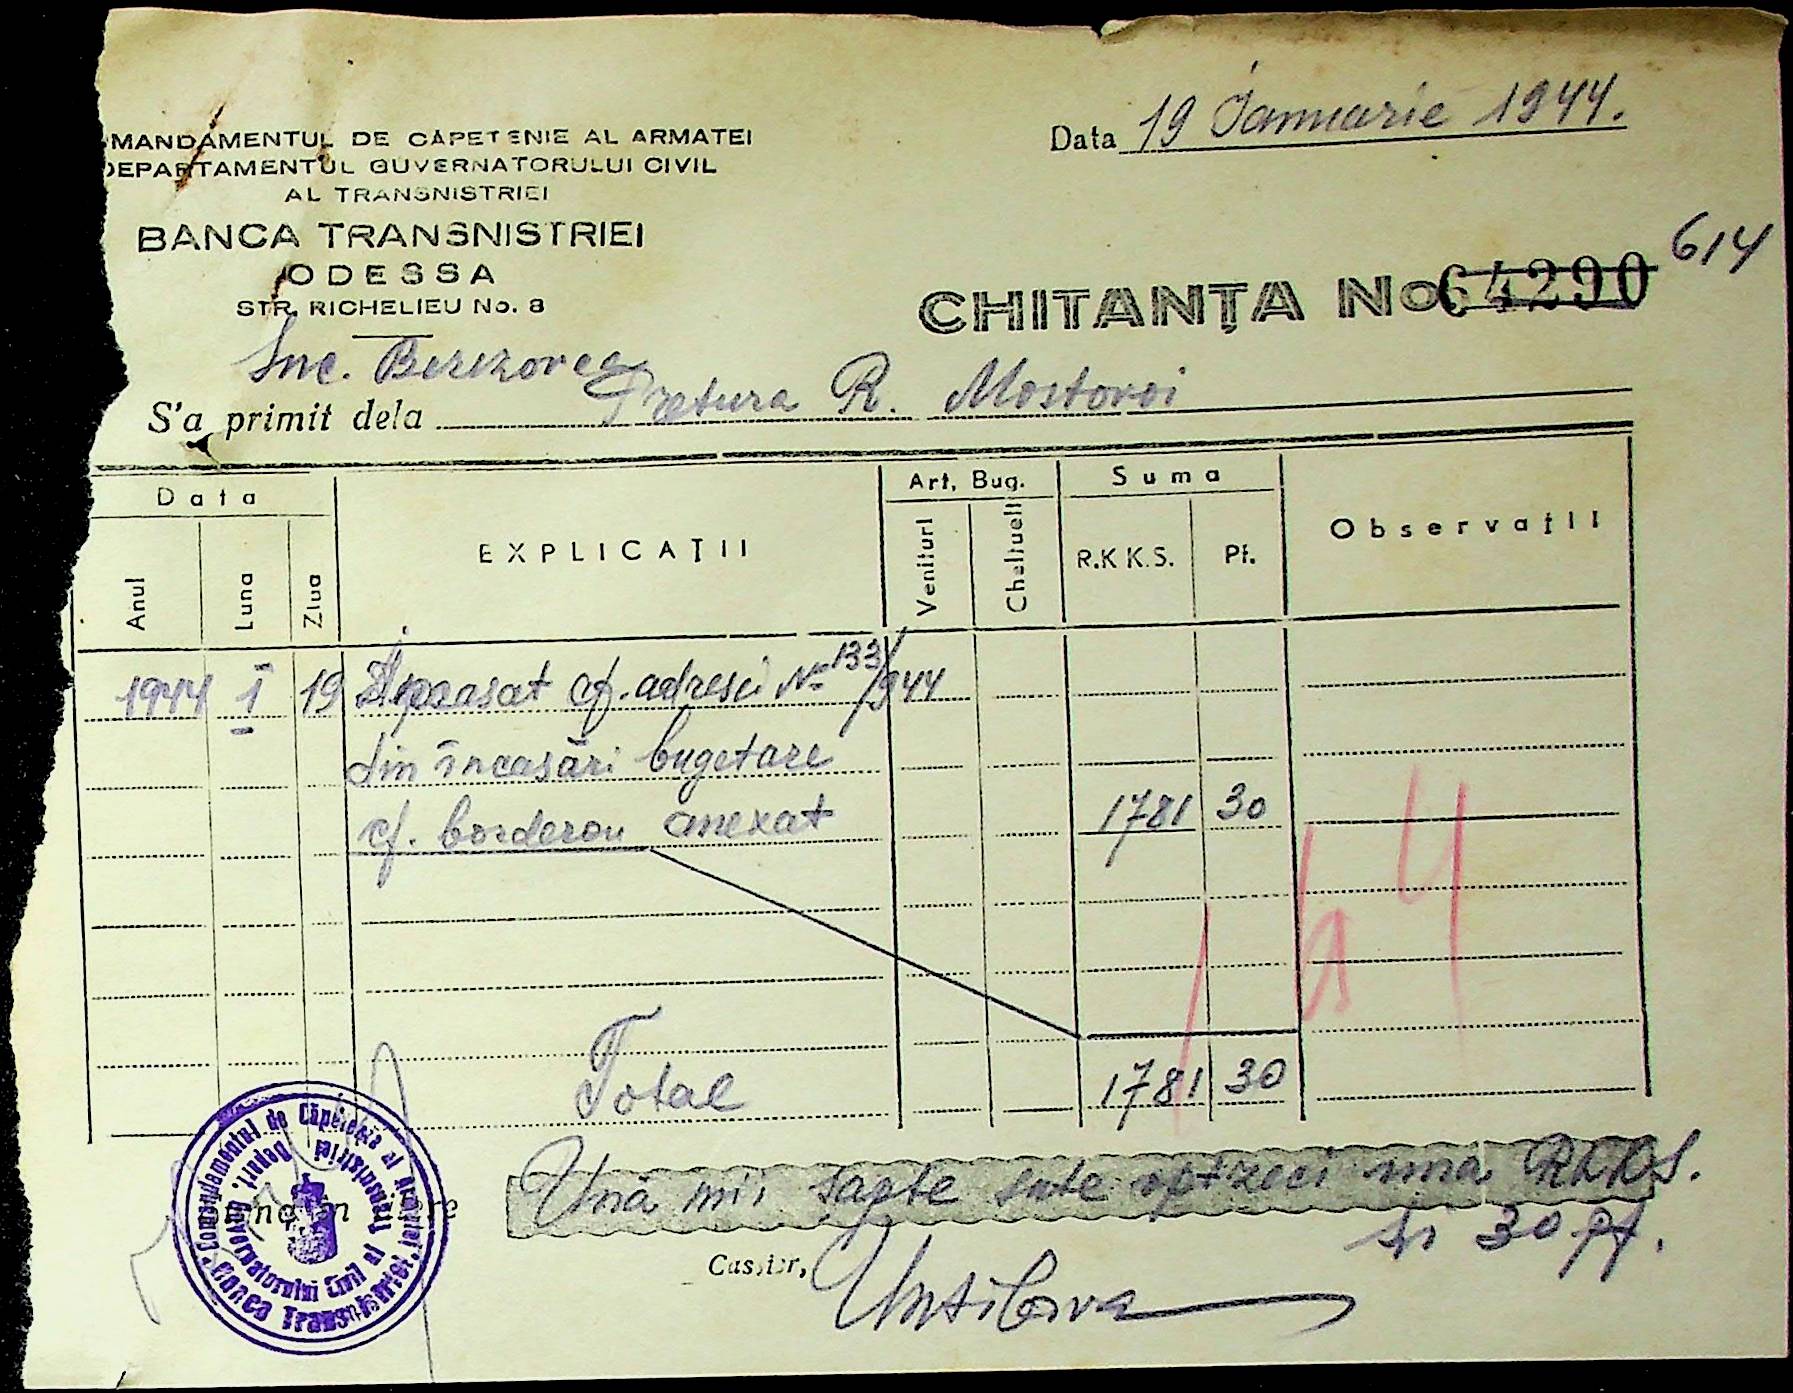 MANDAMENTUL DE CĂPETENIE AL ARMATEI
DEPARTAMENTUL GUVERNATORULUI CIVIL
AL TRANSNISTRIEI
BANCA TRANSNISTRIEI
ODESSA
STR. RICHELIEU No. 8
Data 19 Ianuarie 1944.
614
CHITANȚA No 64290
Suc. Berezovca
S'a primit dela Pretura R. Mostovoi
Data
EXPLICAȚII
Art. Bug.
Suma
Observații
Anul Luna Ziua Venituri Cheltueli R.K.K.S. Pf.
1944 I 19 Depasat cf. adresei No 133/944
din încasări bugetare
cf. borderou anexat 1781 30
164
Total 1781 30
Comandamentul de Căpetenie al Armatei
Depart. Guvernatorului Civil al Transnistriei
Banca Transnistriei
Una mii șapte sute optzeci una RKKS.
și 30 pf.
Cassier,